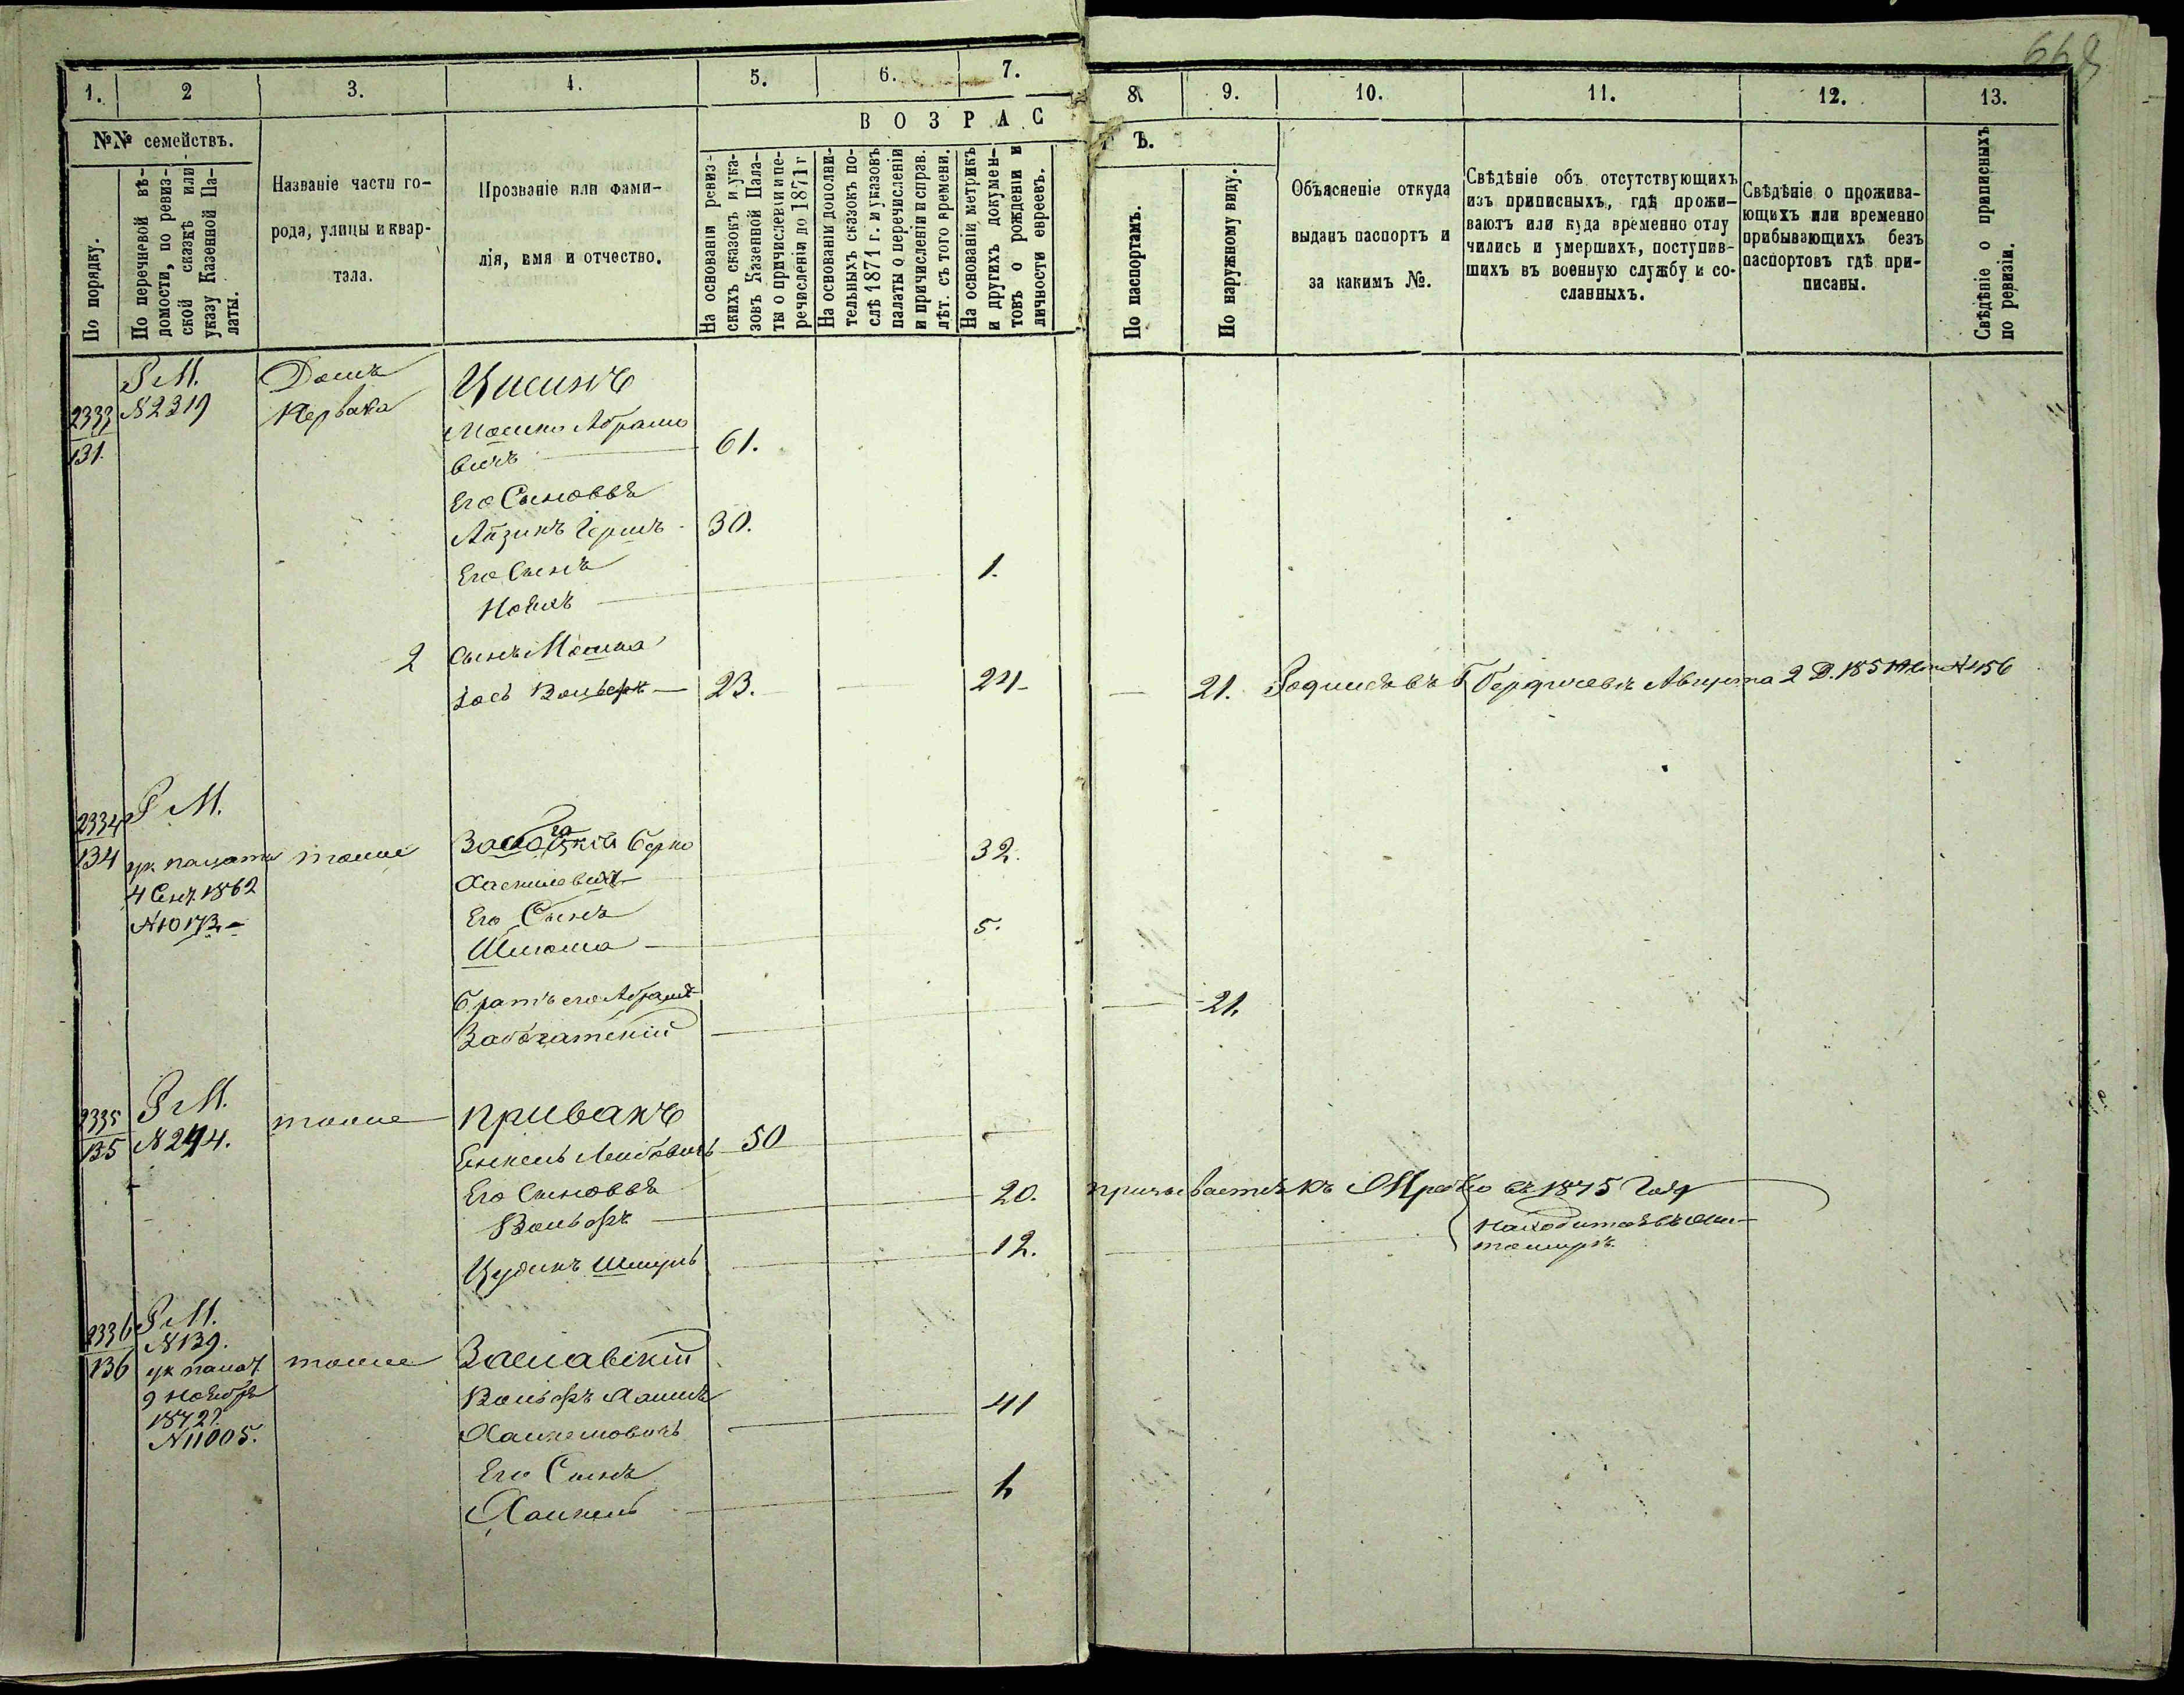 668
1.
2
3.
4.
5.
6.
7.
8.
9.
10.
11.
12.
13.
№№ семействъ.
ВОЗРАС
ТЪ.
По порядку.
По перечневой вѣ-
домости, по ревиз-
ской сказкѣ или
указу Казенной Па-
латы.
Названіе части го-
рода, улицы и квар-
тала.
Прозваніе или фами-
лія, имя и отчество.
На основаніи ревиз-
скихъ сказокъ и ука-
зовъ Казенной Пала-
ты о причисленіи и пе-
речисленіи до 1871 г
На основаніи дополни-
тельныхъ сказокъ по-
слѣ 1871 г. и указовъ
палаты о перечисленіи
и причисленіи и справ.
лѣт. съ того времени.
На основаніи метрикъ
и другихъ докумен-
товъ о рожденіи и
личности евреевъ.
По паспортамъ.
По наружному виду.
Объясненіе откуда
выданъ паспортъ и
за какимъ №.
Свѣдѣніе объ отсутствующихъ
изъ приписныхъ, гдѣ прожи-
ваютъ или куда временно отлу
чились и умершихъ, поступив-
шихъ въ военную службу и со-
сланныхъ.
Свѣдѣніе о прожива-
ющихъ или временно
прибывающихъ безъ
паспортовъ гдѣ при-
писаны.
Свѣдѣніе о приписныхъ
по ревизіи.
2333
131
Р М.
N 2319
Домъ
Цисинъ
Мошко Абрамо
вичъ 61.
Его Сыновья
Айзикъ Герш 30.
Его Сынъ 1.
2 Сынъ Мошка
Іось Вольфъ 23. 21. 21. Родился въ Г Бердичевѣ Августа 2 Д. 185 N 456
2334
134
Р М.
ук палаты
4 Сент. 1862
N 10173
тоже
Берко 32.
Хаскилевичъ
Его Сынъ
Шлиома 5.
Братъ его Абрамъ 21.
Забогатскій
2335
135
Р М.
N 244.
тоже
Привакъ
Енкель Лейбовичъ 50
Его Сыновья
Вольфъ 20. въ 1875 Году
Цудикъ Шмуль 12.
Находится въ
2336
136
Р М.
N 139.
ук палат
9 Ноября
1872 г.
N 11005.
тоже
Заславскій
Вольфъ 41
Его Сынъ
Хаимъ 1